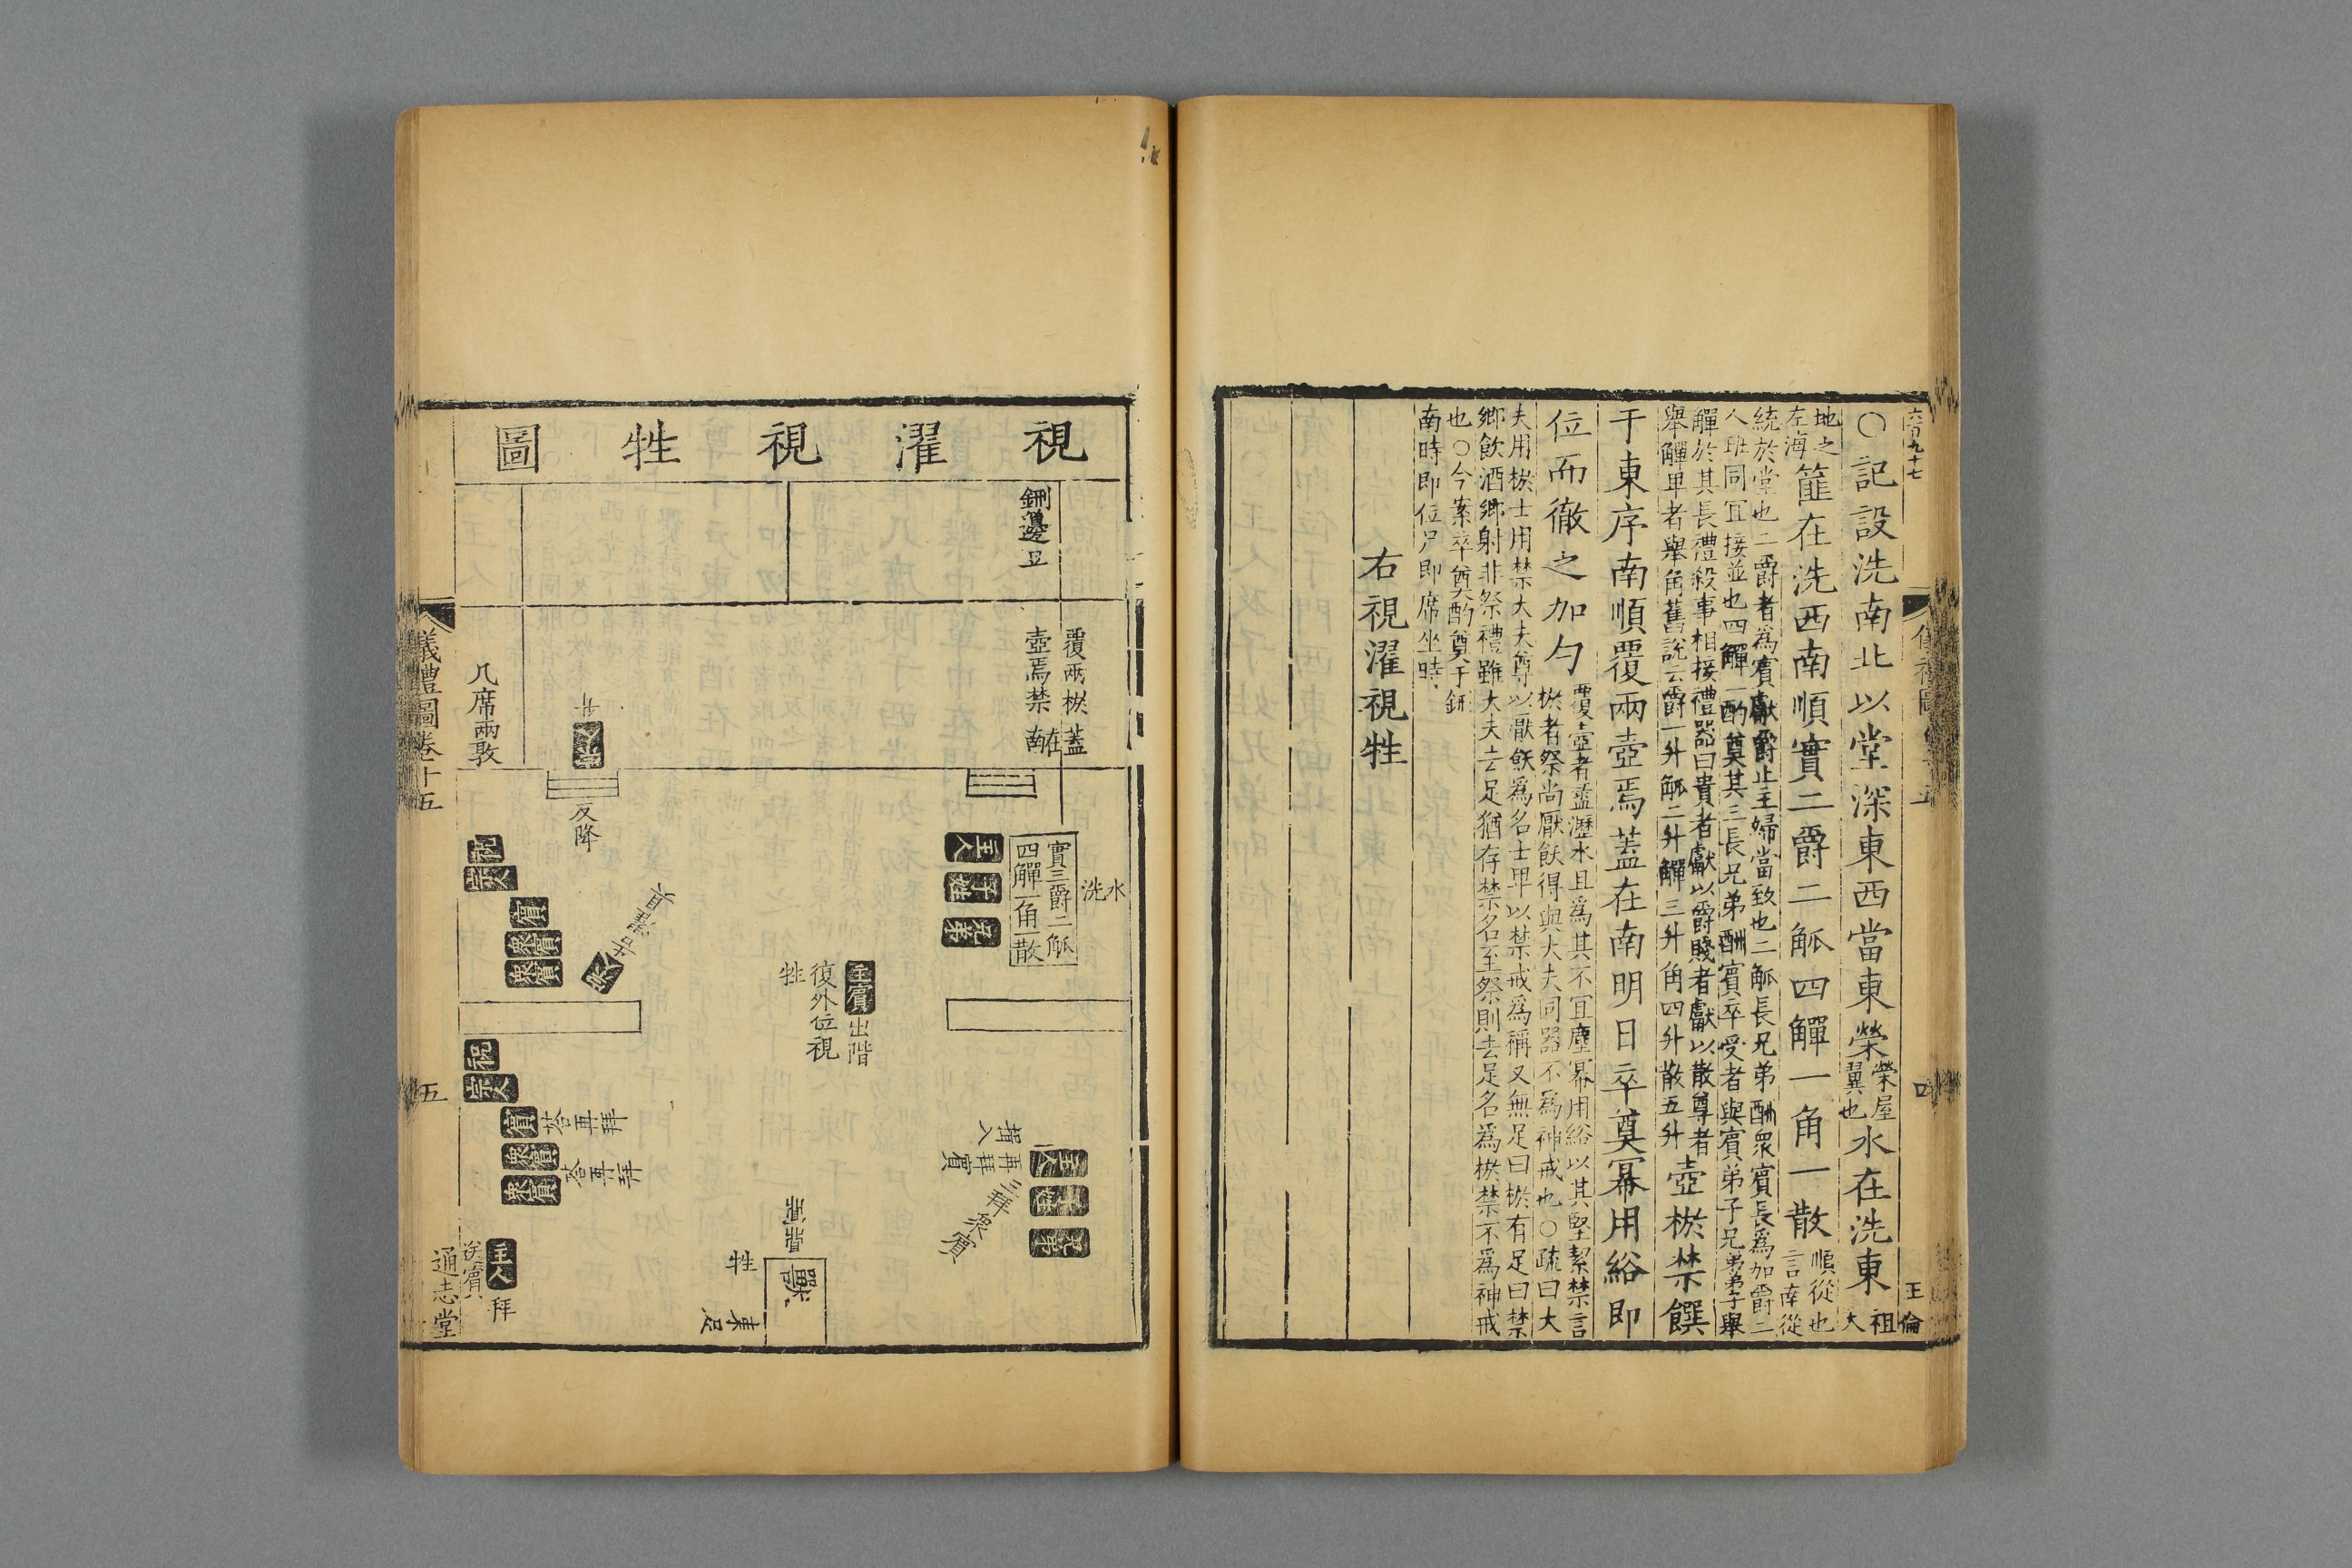 六百九十七
○記設洗南北以堂深東西當東榮榮屋翼也水在洗東祖
大
地之
左海篚在洗西南順實二爵二觚四觶一角一散順從也
言南從
統於堂也二爵者為賓獻爵止主婦當致也二觚長兄弟酬衆賓長為加爵二
人班同宜接並也四觶一酌奠其三長兄弟酬賓卒受者與賓弟子兄弟弟子舉
觶於其長禮殺事相接禮器曰貴者獻以爵賤者獻以散尊者
舉觶卑者舉角舊說云爵一升觚二升觶三升角四升散五升壺棜禁饌
于東序南順覆兩壺焉蓋在南明日卒奠冪用綌即
位而徹之加勺覆壺者盝瀝水且為其不宜塵冪用綌以其堅絜禁言
棜者祭尚厭飫得與大夫同器不為神戒也○疏曰大
夫用棜士用禁大夫尊以厭飫為名士卑以禁戒為稱又無足曰棜有足曰禁
鄉飲酒鄉射非祭禮雖大夫去足猶存禁名至祭則去足名為棜禁不為神戒
也○今案卒奠酌奠于鉶
南時即位尸即席坐時
右視濯視牲
四
王倫
視濯視牲圖
鉶籩豆
覆兩棜蓋
壺焉禁在南
几席兩敦
升
反降
水
洗
實二爵二觚
四觶一角一散
主人
子姓
兄弟
祝
宗人
賓
衆賓
衆賓
主賓出階
復外位視
牲
祝
宗人
賓
荅再拜
衆賓
衆賓
荅再拜
揖入
再拜賓
三拜衆賓
主人
兄弟
獸
牲
東足
主人拜
送賓
儀禮圖卷十五
五
通志堂